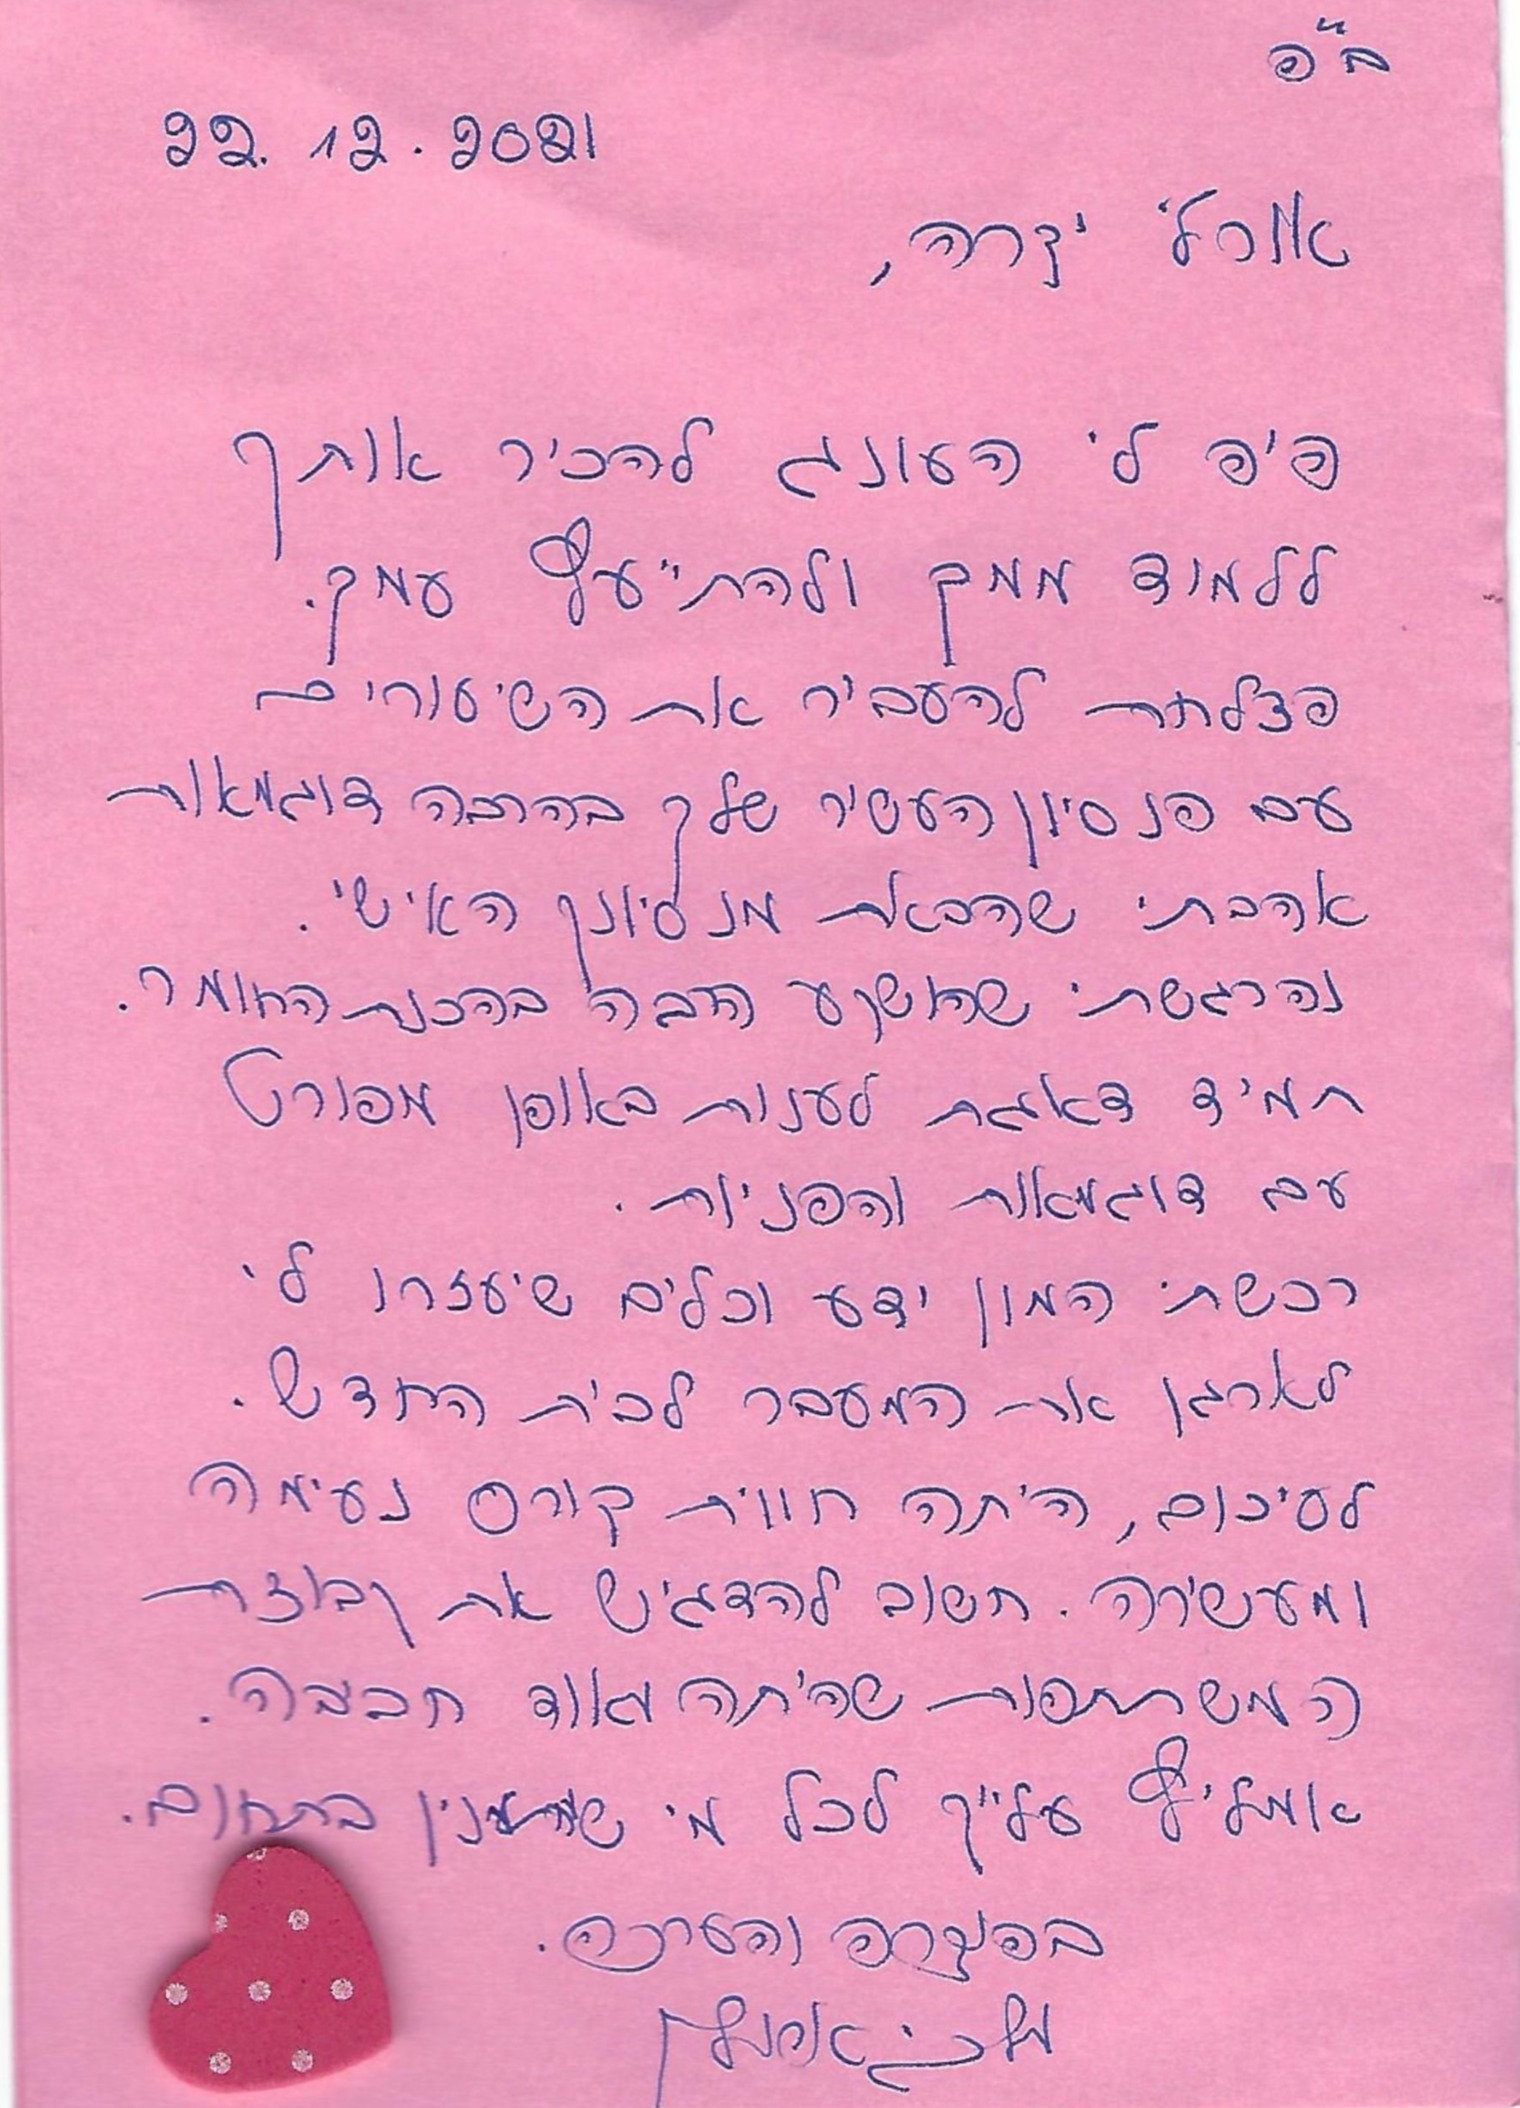 ב"ה
22.12.2021
אורלי יקרה,
היה לי העונג להכיר אותך
ללמוד ממך ולהתייעץ עמך.
הצלחת להעביר את השיעורים
עם הנסיון העשיר שלך בהרבה דוגמאות
אהבתי שהבאת מנסיונך האישי.
והרגשתי שהושקע הרבה בהכנת החומר.
תמיד דאגת לענות באופן מפורט
עם דוגמאות והפניות.
רכשתי המון ידע וכלים שיעזרו לי
לארגן את המעבר לבית החדש.
לסיכום, היתה חווית קורס נעימה
ומעשירה. חשוב להדגיש את קבוצת
המשתתפות שהיתה מאוד חביבה.
אמליץ עלייך לכל מי שמתענין בתחום.
בהצלחה והערכה.